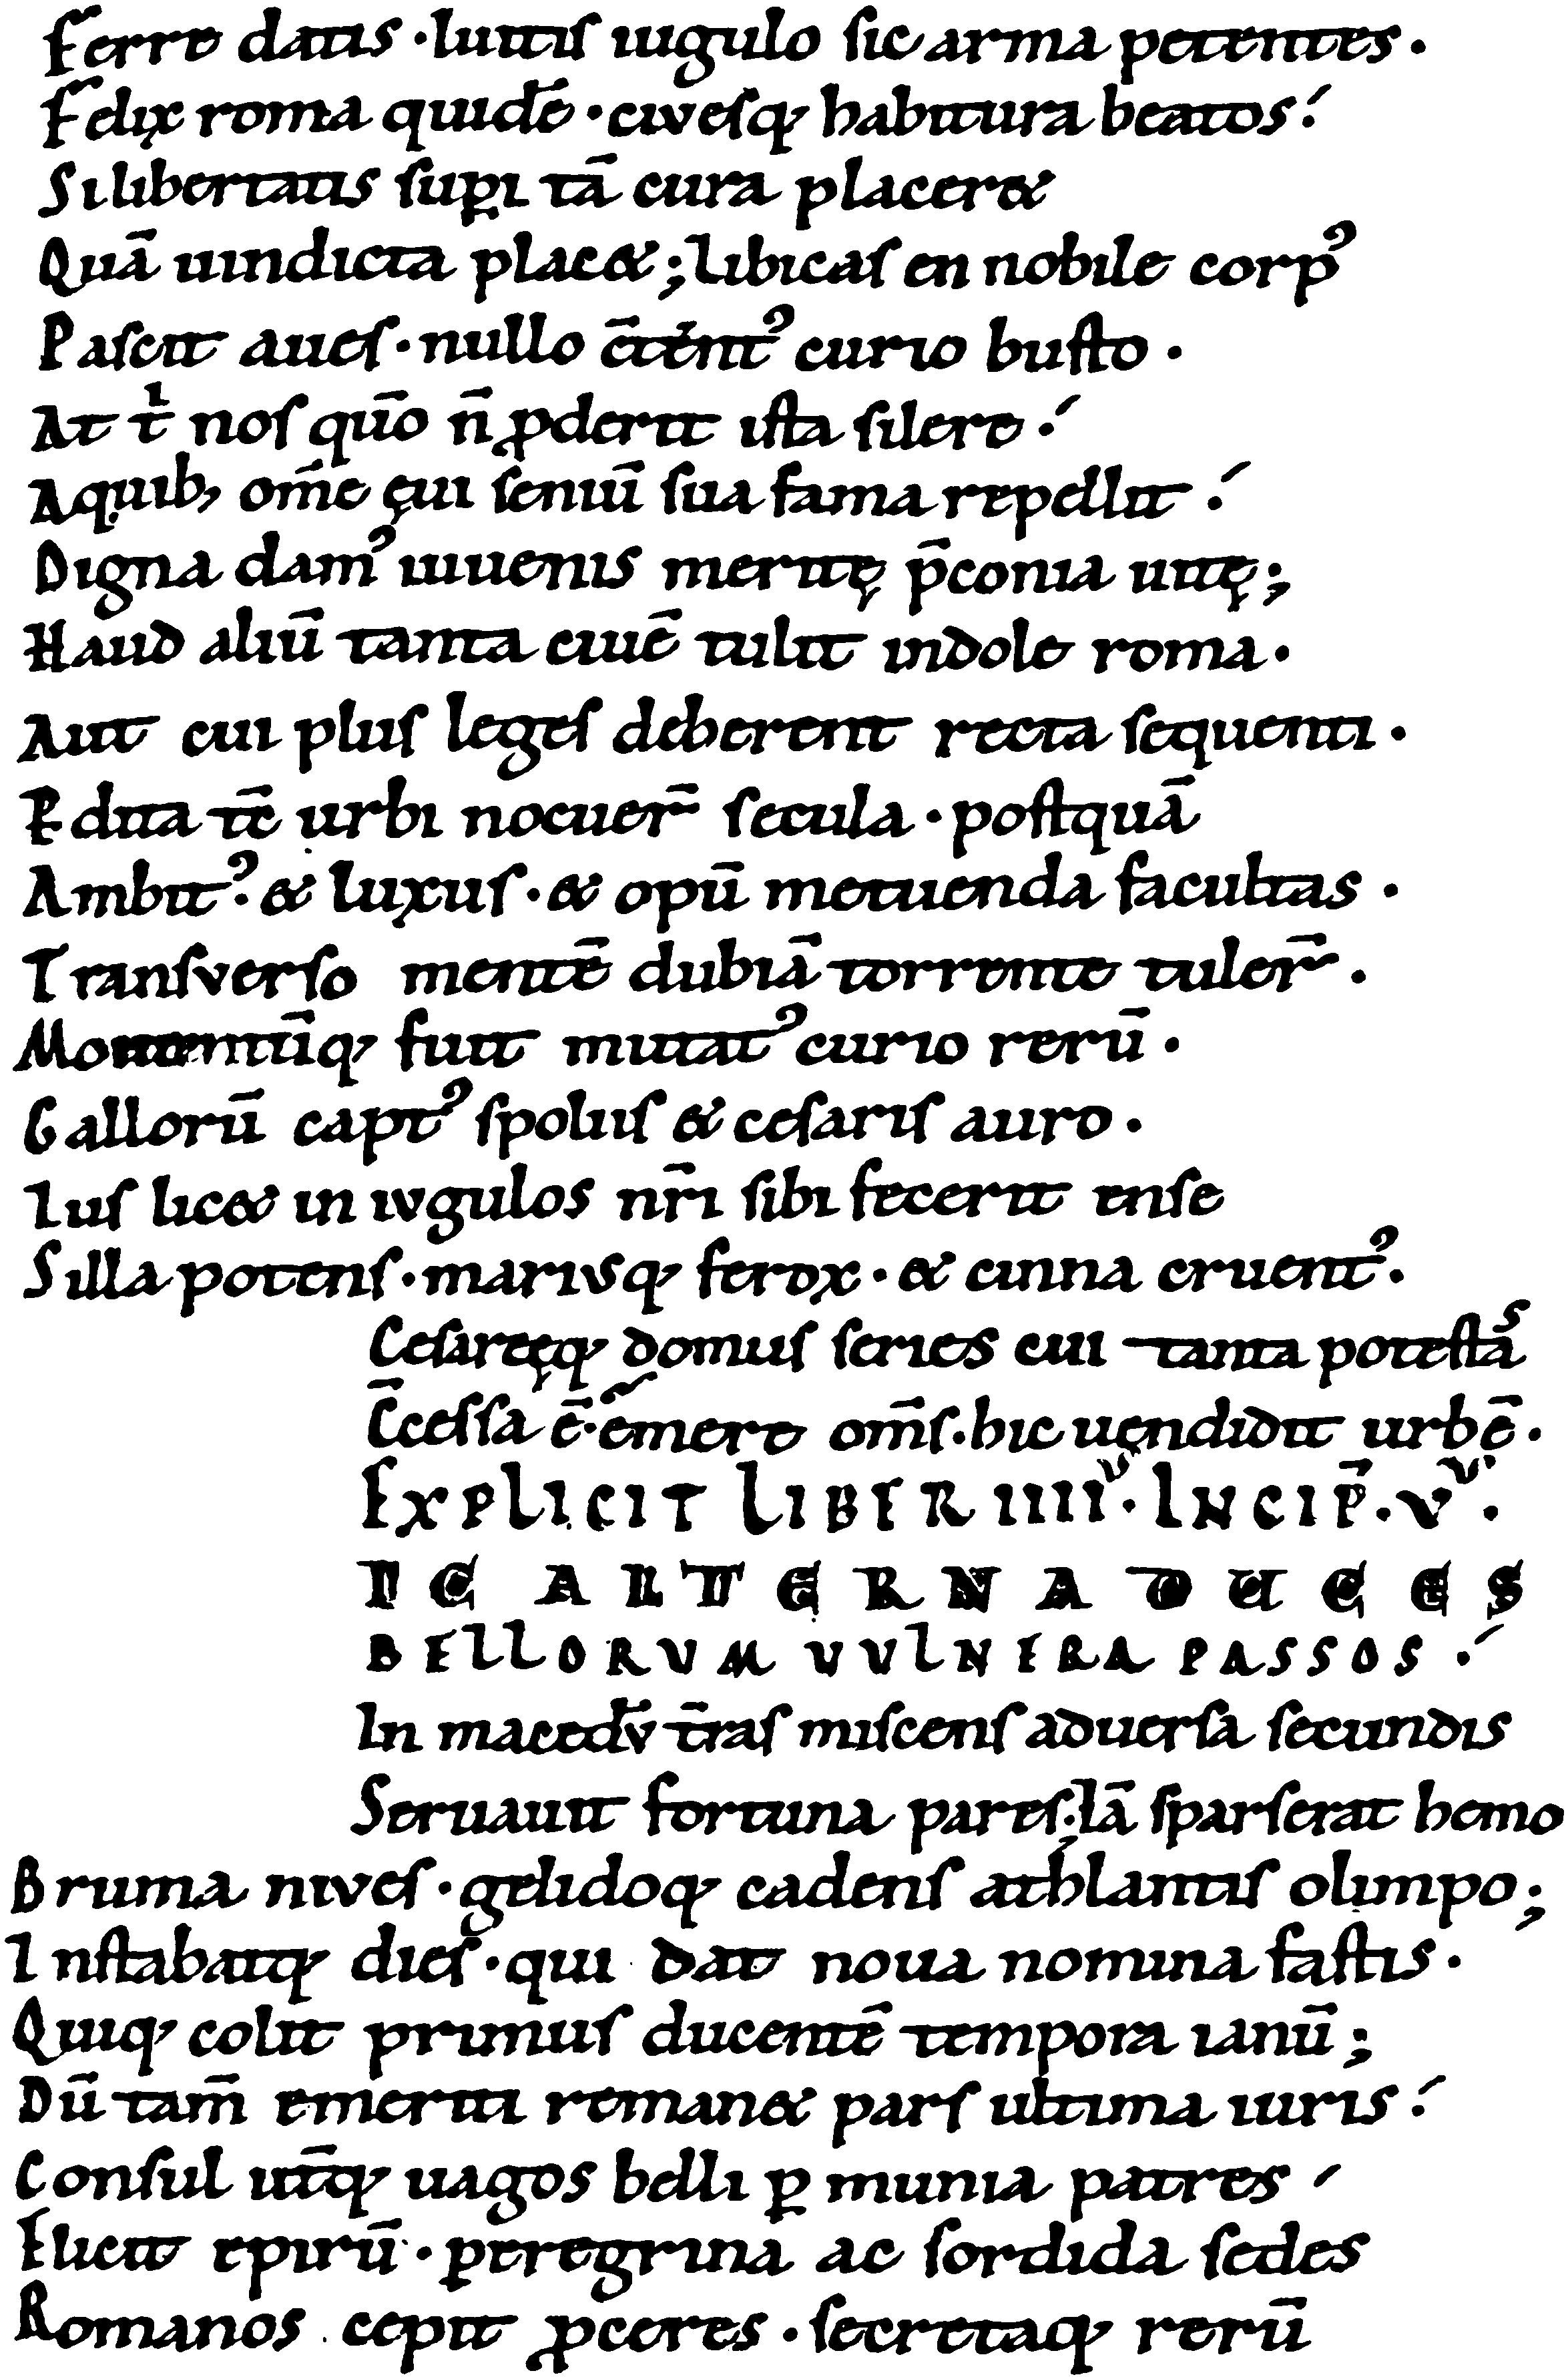 Ferre datis · luitis iugulo sic arma petentes ·
Felix roma quidē · civesq; habitura beatos ⸵
Si libertatis suꝑi tā cura placer&
Quā uindicta plac& ; Libicas en nobile corpꝰ
Pascit aues · nullo c̄tentꝰ curio busto ·
At t̄ nos quō n̄ ꝓderit ista silere ⸵
Aquib; om̄e ęui seniū sua fama repellit ⸵
Digna damꝰ iuuenis meritę p̄conia uitę ;
Haud aliū tanta ciuē tulit indole roma ·
Aut cui plus leges deberent recta sequenti ·
Ꝑdita tc̄ urbi nocuer̄ secula · postquā
Ambitꝰ · & luxus · & opū metuenda facultas ·
Transverso mentē dubiā torrente tuler̄ ·
Momentūq; fuit mutatꝰ curio rerū ·
Gallorū captꝰ spoliis & cesaris auro ·
Ius lic& in ivgulos nr̄i sibi fecerit ense
Silla potens · marivsq; ferox · & cinna cruentꝰ ·
Cesareęq; domus series cui tanta potestās
C̄cessa ē · emere om̄s · hic uendidit urbē ·
EXPLICIT LIBER IIIIᵛˢ · INCIP̄ · Vᵛˢ ·
IC ALTERNA DUCES
BELLORVM VVLNERA PASSOS ⸵
In macedv̄ t̄ras miscens aduersa secundis
Seruauit fortuna pares ; Iā sparserat hemo
Bruma nives · gelidoq; cadens athlantis olimpo ;
Instabatq; dies · qui dat noua nomina fastis ·
Quiq; colit primus ducentē tempora ianū ;
Dū tam̄ emeriti reman& pars ultima iuris ⸵
Consul ut̄q; uagos belli ꝑ munia patres ⸍
Elicit epirū · ꝑegrina ac sordida sedes
Romanos cepit ꝓceres · secretaq; rerū